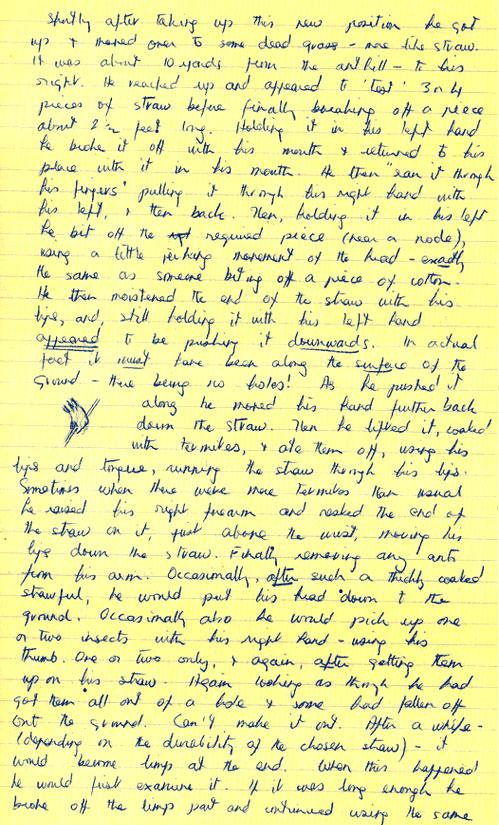 Shortly after taking up this new position he got
up & moved over to some dead grass - more like straw.
It was about 10 yards from the ant hill - to his
right. He reached up and appeared to 'test' 3 or 4
pieces of straw before finally breaking off a piece
about 2 ½ feet long. Holding it in his left hand
he broke it off with his mouth & returned to his
place with it in his mouth. He then "ran it through
his fingers" pulling it through his right hand with
his left, & then back. Then, holding it in his left
he bit off the required piece (near a node),
using a little jerking movement of the head - exactly
the same as someone biting off a piece of cotton.
He then moistened the end of the straw with his
lips, and, still holding it with his left hand
appeared to be pushing it downwards. In actual
fact it must have been along the surface of the
ground - there being no holes! As he pushed it
along he moved his hand further back
down the straw. Then he lifted it, coated
with termites, & ate them off, using his
lips and tongue, running the straw through his lips.
Sometimes when there were more termites than usual
he raised his right forearm and rested the end of
the straw on it, just above the wrist, moving his
lips down the straw. Finally removing any ants
from his arm. Occasionally, after such a thickly coated
strawful, he would put his head down to the
ground. Occasionally also he would pick up one
or two insects with his right hand - using his
thumb. One or two only, & again, after getting them
up on his straw. Again looking as though he had
got them all out of a hole & some had fallen off
onto the ground. Can't make it out. After a while -
(depending on the durability of the chosen straw) - it
would become limp at the end. When this happened
he would first examine it. If it was long enough he
broke off the limp part and continued using the same